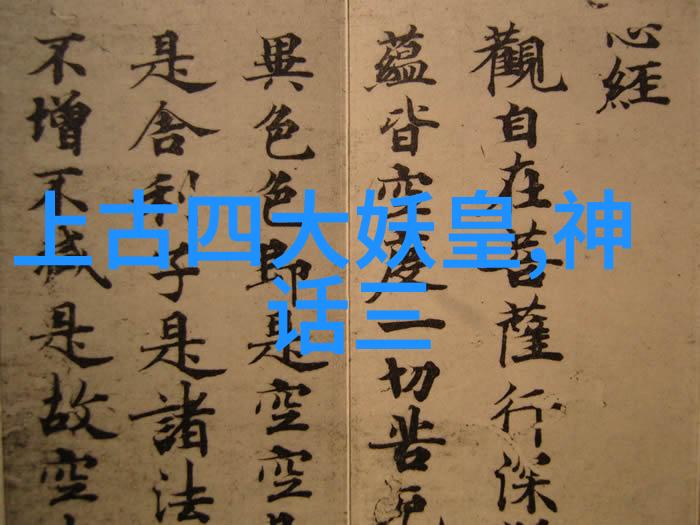 心經
觀自在菩薩行深
蘊皆空度一切苦厄
異色色即是空空
是舍利子是諸法
不增不減是故空
上古四大妖皇,神
话三